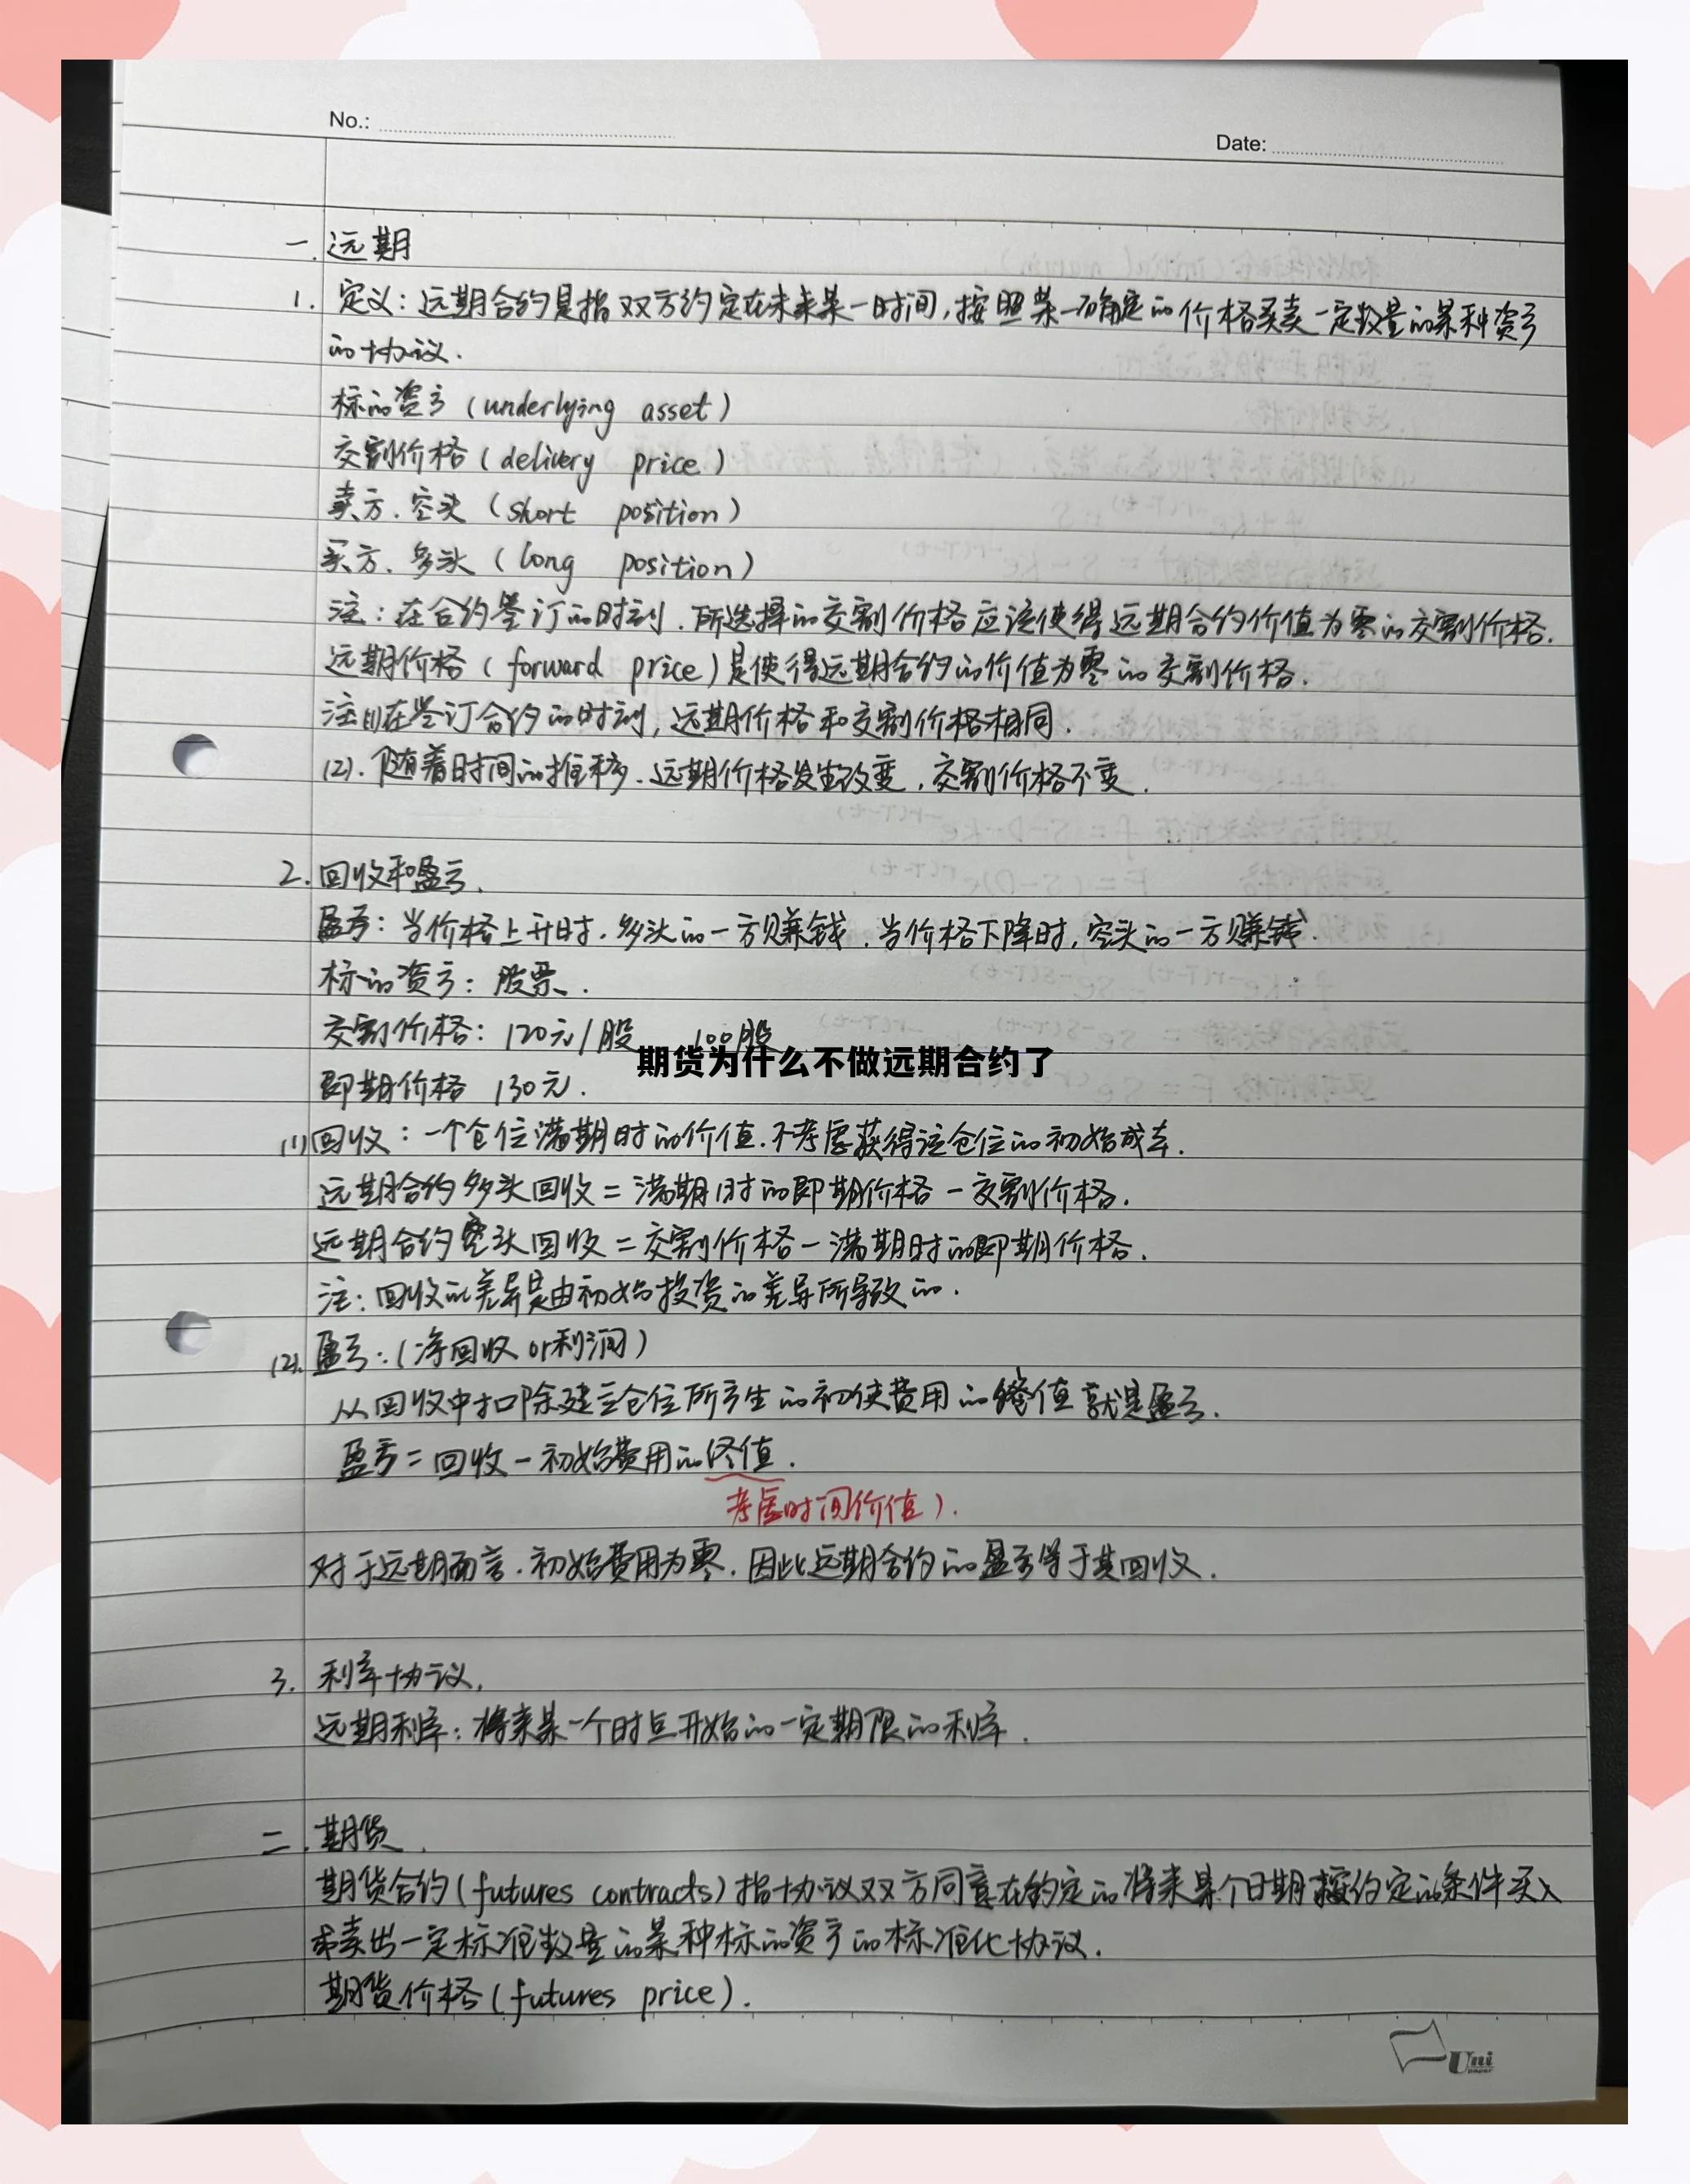 No.:
Date:
一. 远期
1. 定义：远期合约是指双方约定在未来某一时间，按照某一确定的价格买卖一定数量的某种资产
的协议.
标的资产（underlying asset）
交割价格（delivery price）
卖方.空头（short position）
买方.多头（long position）
注：在合约签订的时刻.所选择的交割价格应该使得远期合约价值为零的交割价格.
远期价格（forward price）是使得远期合约的价值为零的交割价格.
注(1)在签订合约的时刻，远期价格和交割价格相同.
(2).随着时间的推移.远期价格发生改变，交割价格不变.
2. 回收和盈亏.
盈亏：当价格上升时.多头的一方赚钱.当价格下降时，空头的一方赚钱.
标的资产：股票.
交割价格：120元/股 100股
期货为什么不做远期合约了
即期价格 130元.
(1)回收：一个仓位满期时的价值.不考虑获得该仓位的初始成本.
远期合约多头回收=满期时的即期价格-交割价格.
远期合约空头回收=交割价格-满期时的即期价格.
注：回收的差异是由初始投资的差异所导致的.
(2).盈亏：（净回收or利润）
从回收中扣除建立仓位所产生的初使费用的终值就是盈亏.
盈亏=回收-初始费用的终值.
考虑时间价值）.
对于远期而言.初始费用为零.因此远期合约的盈亏等于其回收.
3. 利率协议.
远期利率：将来某一个时点开始的一定期限的利率.
二. 期货.
期货合约（futures contracts）指协议双方同意在约定的将来某个日期按约定的条件买入
或卖出一定标准数量的某种标的资产的标准化协议.
期货价格（futures price）.
Uni